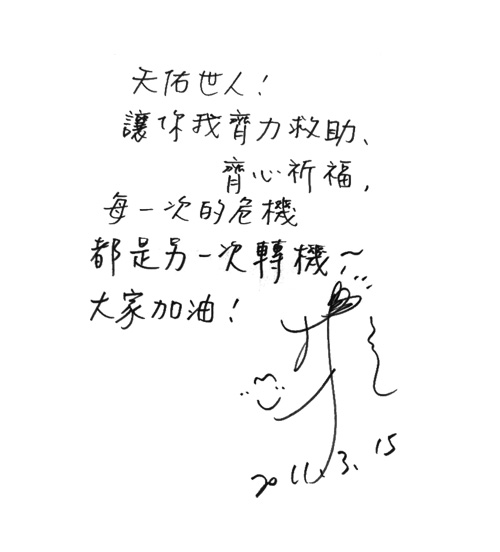 天佑世人！
讓你我齊力救助、
齊心祈福，
每一次的危機
都是另一次轉機～
大家加油！
2011.3.15